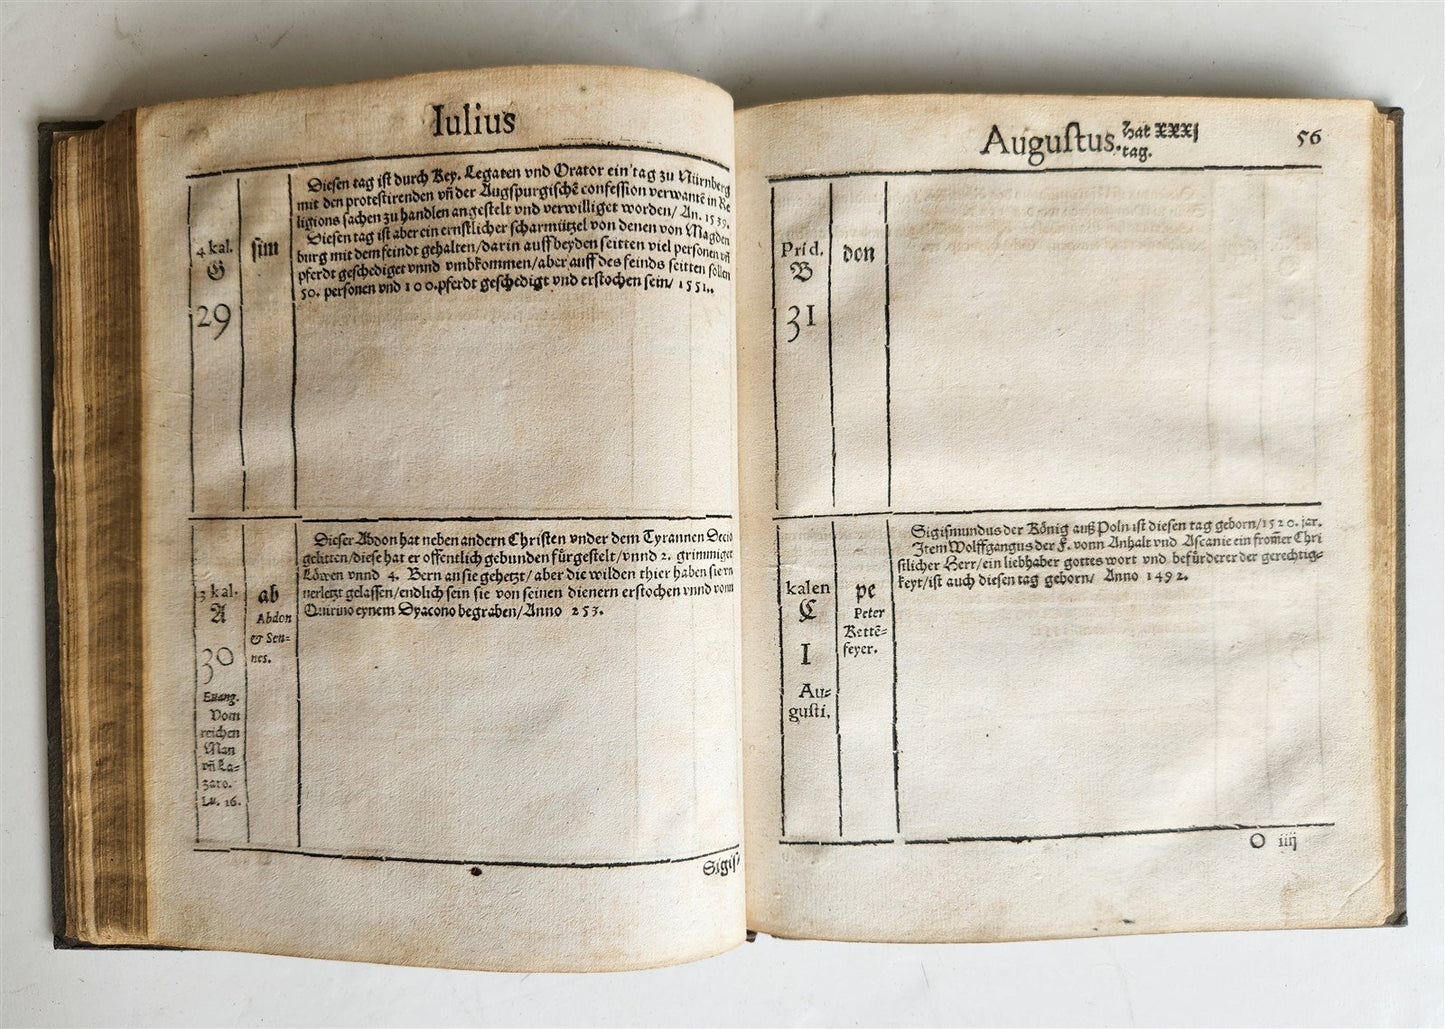 Iulius
4 kal.
G
29
sim
Diesen tag ist durch Key. Legaten vnd Orator ein tag zu Nürnberg
mit den protestirenden vñ der Augspurgischē confession verwantē in Re
ligions sachen zu handlen angestelt vnd verwilliget worden/ An. 1539.
Diesen tag ist aber ein ernstlicher scharmützel von denen von Magden
burg mit dem feindt gehalten/darin auff beyden seitten viel personen vñ
pferdt geschediget vnnd vmbkommen/aber auff des feinds seitten sollen
50. personen vnd 100.pferdt geschedigt vnd erstochen sein/ 1551.
3 kal.
A
30
Euang.
Vom
reichen
Man
vñ La=
zaro.
Lu. 16.
ab
Abdon
& Sen=
nes.
Dieser Abdon hat neben andern Christen vnder dem Tyrannen Decio
gelitten/diese hat er offentlich gebunden fürgestelt/vnnd 2. grimmiger
Löwen vnnd 4. Bern an sie gehetzt/aber die wilden thier haben sie vn
uerletzt gelassen/endlich sein sie von seinen dienern erstochen vnnd vonn
Quirino eynem Dyacono begraben/Anno 253.
Sigis
Augustus. Hat xxxj
tag.
56
Prid.
B
31
don
kalen
C
1
Au=
gusti.
pe
Peter
Kettē=
feyer.
Sigismundus der König auß Poln ist diesen tag geborn/1520. jar.
Item Wolffgangus der F. vonn Anhalt vnd Ascanie ein from̄er Chri
stlicher Herr/ein liebhaber gottes wort vnd befürderer der gerechtig=
keyt/ist auch diesen tag geborn/ Anno 1492.
O iiij